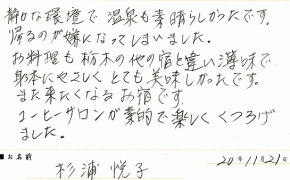 静かな環境で温泉も素晴らしかったです。
帰るのが嫌になってしまいました。
お料理も栃木の他の宿と違い薄味で、
身体にやさしくとても美味しかったです。
また来たくなるお宿です。
コーヒーサロンが素的で楽しくくつろげ
ました。
■お名前 杉浦 悦子 20年11月21日